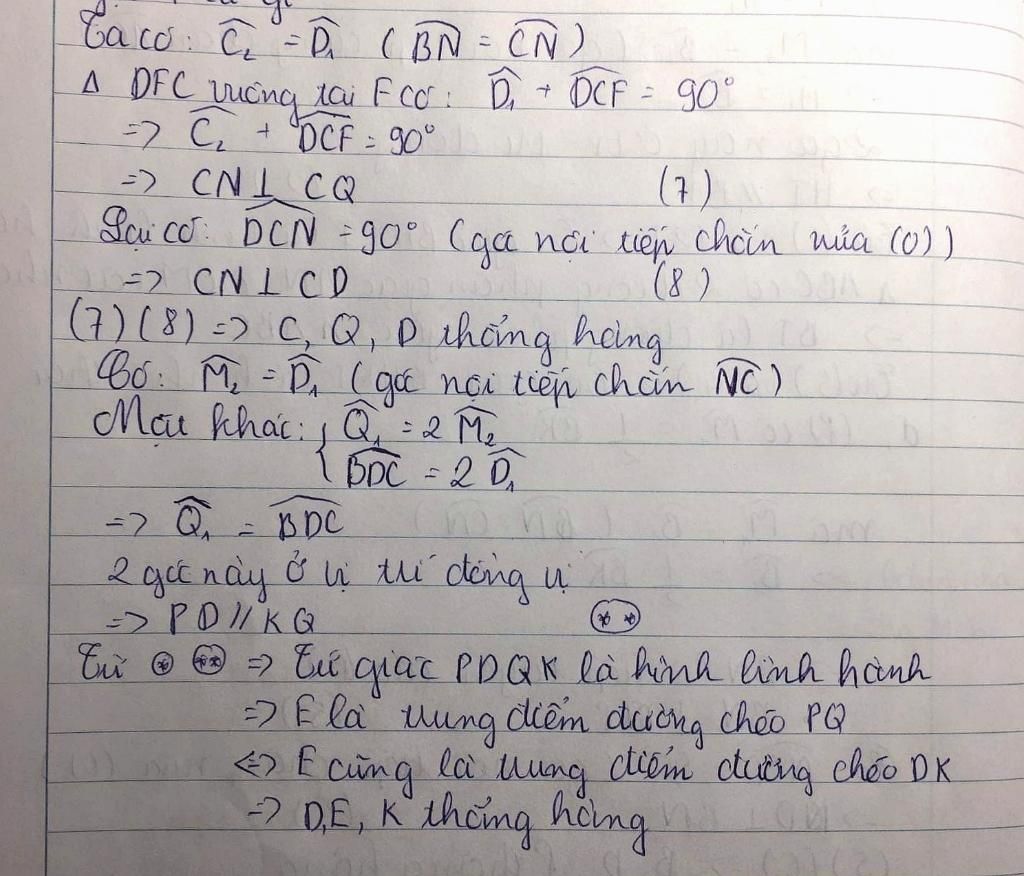 Ta có: Ĉ₂ = D̂₁ (B͡N = C͡N)
Δ DFC vuông tại F có: D̂₁ + D̂CF = 90°
=> Ĉ₂ + D̂CF = 90°
=> CN ⊥ CQ (7)
Lại có: D̂CN = 90° (góc nội tiếp chắn nửa (O))
=> CN ⊥ CD (8)
(7)(8) => C, Q, D thẳng hàng
Có: M̂₂ = D̂₁ (góc nội tiếp chắn N͡C)
Mặt khác: { Q̂₁ = 2 M̂₂
B̂DC = 2 D̂₁
=> Q̂₁ = B̂DC
2 góc này ở vị trí đồng vị
=> PD // KQ (**)
Từ (*) (**) => Tứ giác PDQK là hình bình hành
=> E là trung điểm đường chéo PQ
<=> E cũng là trung điểm đường chéo DK
=> D, E, K thẳng hàng